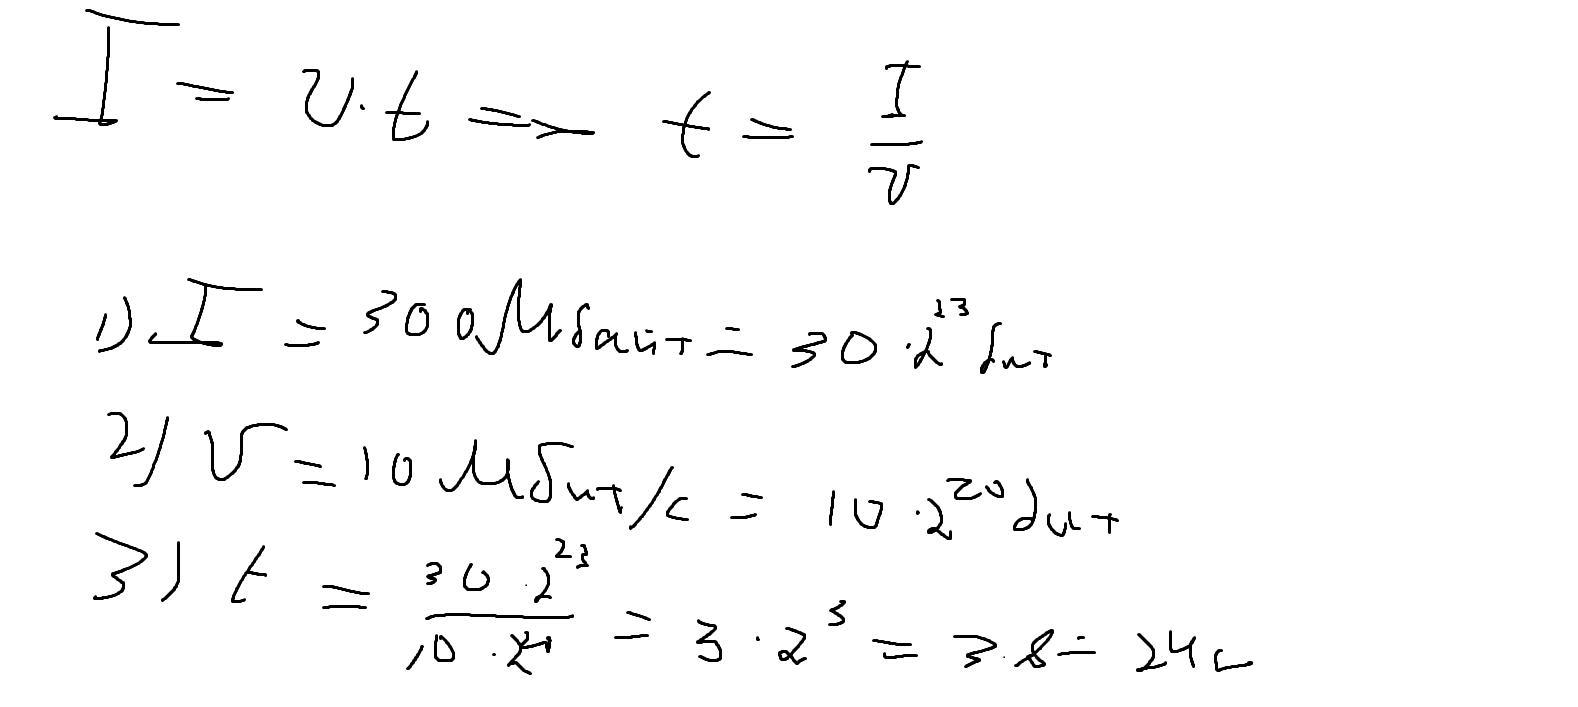 I = v · t => t = I / v
1) I = 300 Мбайт = 30 · 2^23 бит
2) v = 10 Мбит/с = 10 · 2^20 бит
3) t = 30 · 2^23 / 10 · = 3 · 2^3 = 3 · 8 = 24 с